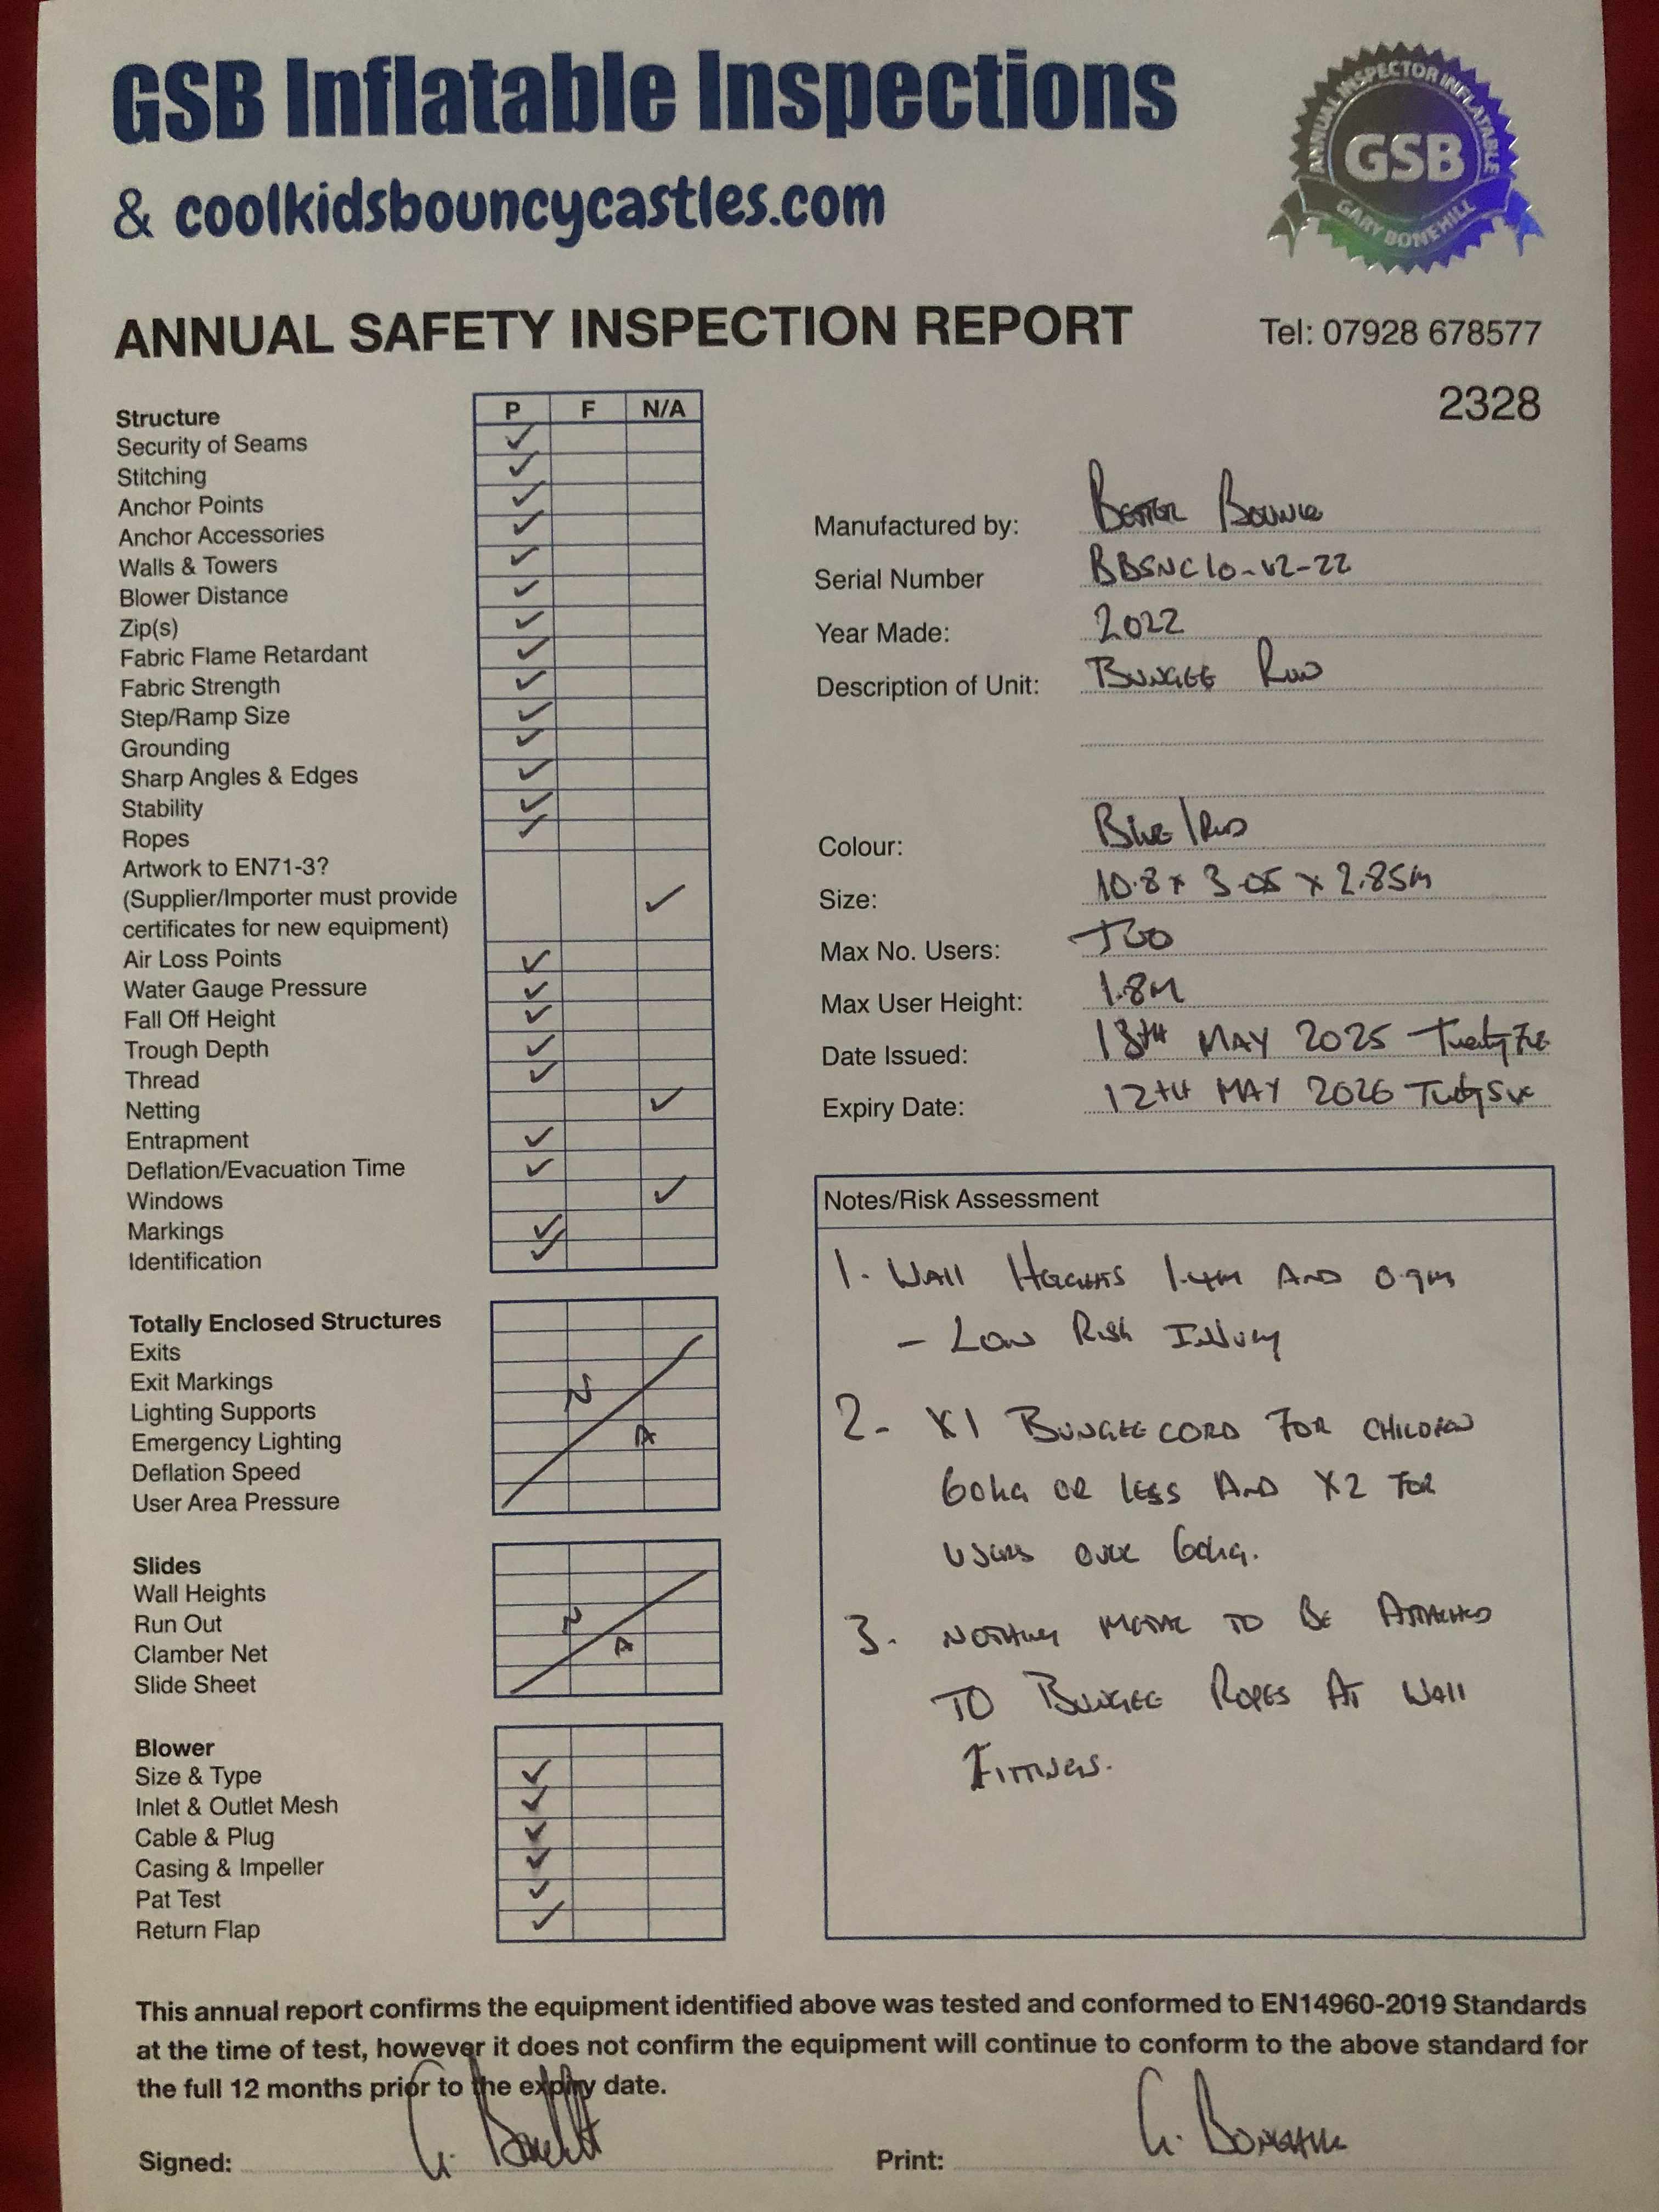 GSB Inflatable Inspections
& coolkidsbouncycastles.com
ANNUAL INSPECTOR INFLATABLE
GSB
GARY BONEHILL
ANNUAL SAFETY INSPECTION REPORT
Tel: 07928 678577
2328
Structure P F N/A
Security of Seams ✓
Stitching ✓
Anchor Points ✓
Anchor Accessories ✓
Walls & Towers ✓
Blower Distance ✓
Zip(s) ✓
Fabric Flame Retardant ✓
Fabric Strength ✓
Step/Ramp Size ✓
Grounding ✓
Sharp Angles & Edges ✓
Stability ✓
Ropes ✓
Artwork to EN71-3?
(Supplier/Importer must provide ✓
certificates for new equipment)
Air Loss Points ✓
Water Gauge Pressure ✓
Fall Off Height ✓
Trough Depth ✓
Thread ✓
Netting ✓
Entrapment ✓
Deflation/Evacuation Time ✓
Windows ✓
Markings ✓
Identification ✓
Totally Enclosed Structures
Exits
Exit Markings
Lighting Supports
Emergency Lighting
Deflation Speed
User Area Pressure
N A
Slides
Wall Heights
Run Out
Clamber Net
Slide Sheet
N A
Blower
Size & Type ✓
Inlet & Outlet Mesh ✓
Cable & Plug ✓
Casing & Impeller ✓
Pat Test ✓
Return Flap ✓
Manufactured by: BETTER BOUNCE
Serial Number BBSNC10-V2-22
Year Made: 2022
Description of Unit: BUNGEE RUN
Colour: BLUE/RED
Size: 10.8 x 3.05 x 2.85m
Max No. Users: TWO
Max User Height: 1.8M
Date Issued: 13TH MAY 2025 Twenty Five
Expiry Date: 12TH MAY 2026 Twenty Six
Notes/Risk Assessment
1. WALL HEIGHTS 1.4M AND 0.9m
- LOW RISK INJURY
2- X1 BUNGEE CORD FOR CHILDREN
60kg OR LESS AND X2 FOR
USERS OVER 60kg.
3. NOTHING METAL TO BE ATTACHED
TO BUNGEE ROPES AT WALL
FITTINGS.
This annual report confirms the equipment identified above was tested and conformed to EN14960-2019 Standards
at the time of test, however it does not confirm the equipment will continue to conform to the above standard for
the full 12 months prior to the expiry date.
Signed: G. Bonehill
Print: G. BONEHILL